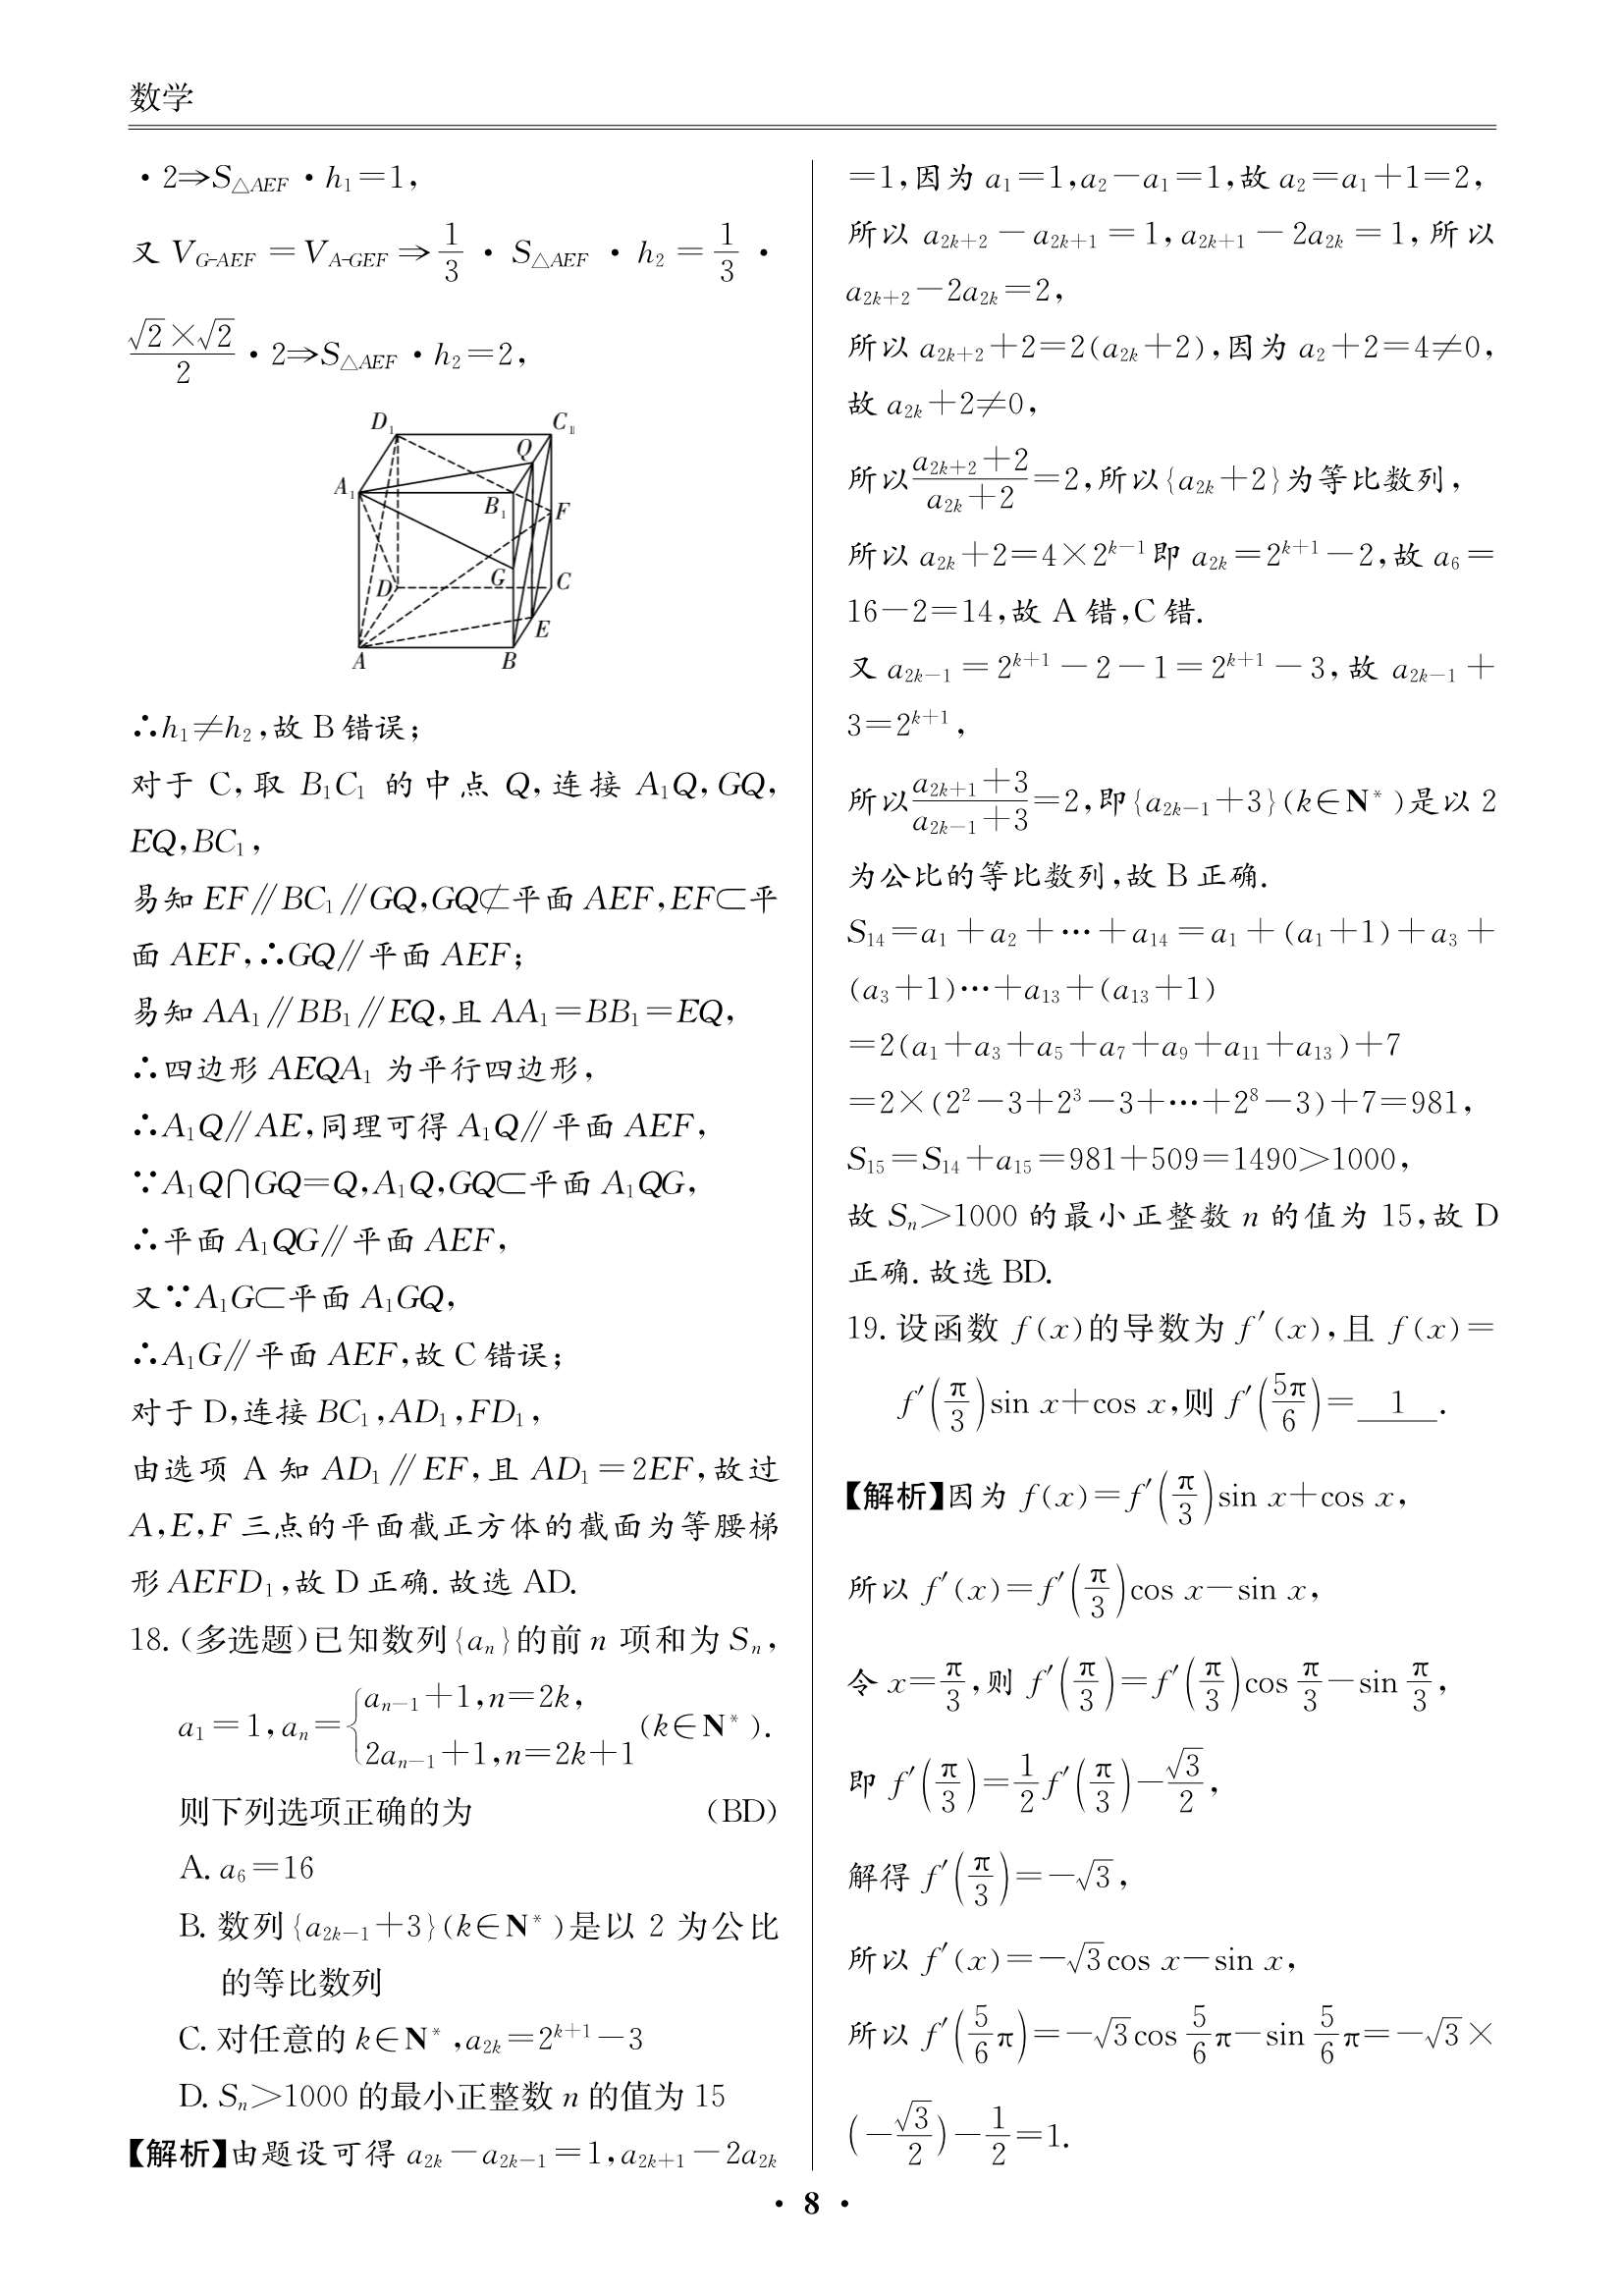 数学
·2⇒S△AEF·h₁=1,
又 V_{G-AEF}=V_{A-GEF}⇒\frac{1}{3}·S△AEF·h₂=\frac{1}{3}·
\frac{\sqrt{2}×\sqrt{2}}{2}·2⇒S△AEF·h₂=2,
D₁ C₁
Q
A₁
B₁ F
D G C
E
A B
∴h₁≠h₂,故 B 错误;
对于 C,取 B₁C₁ 的中点 Q,连接 A₁Q,GQ,
EQ,BC₁,
易知 EF∥BC₁∥GQ,GQ⊄平面 AEF,EF⊂平
面 AEF,∴GQ∥平面 AEF;
易知 AA₁∥BB₁∥EQ,且 AA₁=BB₁=EQ,
∴四边形 AEQA₁ 为平行四边形,
∴A₁Q∥AE,同理可得 A₁Q∥平面 AEF,
∵A₁Q∩GQ=Q,A₁Q,GQ⊂平面 A₁QG,
∴平面 A₁QG∥平面 AEF,
又∵A₁G⊂平面 A₁GQ,
∴A₁G∥平面 AEF,故 C 错误;
对于 D,连接 BC₁,AD₁,FD₁,
由选项 A 知 AD₁∥EF,且 AD₁=2EF,故过
A,E,F 三点的平面截正方体的截面为等腰梯
形 AEFD₁,故 D 正确.故选 AD.
18.(多选题)已知数列{aₙ}的前 n 项和为 Sₙ,
a₁=1,aₙ=\begin{cases}a_{n-1}+1,n=2k,\\2a_{n-1}+1,n=2k+1\end{cases}(k∈N*).
则下列选项正确的为 (BD)
A. a₆=16
B. 数列{a_{2k-1}+3}(k∈N*)是以 2 为公比
的等比数列
C. 对任意的 k∈N*,a_{2k}=2^{k+1}-3
D. Sₙ>1000 的最小正整数 n 的值为 15
【解析】由题设可得 a_{2k}-a_{2k-1}=1,a_{2k+1}-2a_{2k}
=1,因为 a₁=1,a₂-a₁=1,故 a₂=a₁+1=2,
所以 a_{2k+2}-a_{2k+1}=1,a_{2k+1}-2a_{2k}=1,所以
a_{2k+2}-2a_{2k}=2,
所以 a_{2k+2}+2=2(a_{2k}+2),因为 a₂+2=4≠0,
故 a_{2k}+2≠0,
所以\frac{a_{2k+2}+2}{a_{2k}+2}=2,所以{a_{2k}+2}为等比数列,
所以 a_{2k}+2=4×2^{k-1}即 a_{2k}=2^{k+1}-2,故 a₆=
16-2=14,故 A 错,C 错.
又 a_{2k-1}=2^{k+1}-2-1=2^{k+1}-3,故 a_{2k-1}+
3=2^{k+1},
所以\frac{a_{2k+1}+3}{a_{2k-1}+3}=2,即{a_{2k-1}+3}(k∈N*)是以 2
为公比的等比数列,故 B 正确.
S₁₄=a₁+a₂+…+a₁₄=a₁+(a₁+1)+a₃+
(a₃+1)…+a₁₃+(a₁₃+1)
=2(a₁+a₃+a₅+a₇+a₉+a₁₁+a₁₃)+7
=2×(2²-3+2³-3+…+2⁸-3)+7=981,
S₁₅=S₁₄+a₁₅=981+509=1490>1000,
故 Sₙ>1000 的最小正整数 n 的值为 15,故 D
正确.故选 BD.
19. 设函数 f(x)的导数为 f′(x),且 f(x)=
f′(\frac{π}{3})sin x+cos x,则 f′(\frac{5π}{6})=__1__.
【解析】因为 f(x)=f′(\frac{π}{3})sin x+cos x,
所以 f′(x)=f′(\frac{π}{3})cos x-sin x,
令 x=\frac{π}{3},则 f′(\frac{π}{3})=f′(\frac{π}{3})cos \frac{π}{3}-sin \frac{π}{3},
即 f′(\frac{π}{3})=\frac{1}{2}f′(\frac{π}{3})-\frac{\sqrt{3}}{2},
解得 f′(\frac{π}{3})=-\sqrt{3},
所以 f′(x)=-\sqrt{3}cos x-sin x,
所以 f′(\frac{5}{6}π)=-\sqrt{3}cos \frac{5}{6}π-sin \frac{5}{6}π=-\sqrt{3}×
(-\frac{\sqrt{3}}{2})-\frac{1}{2}=1.
· 8 ·